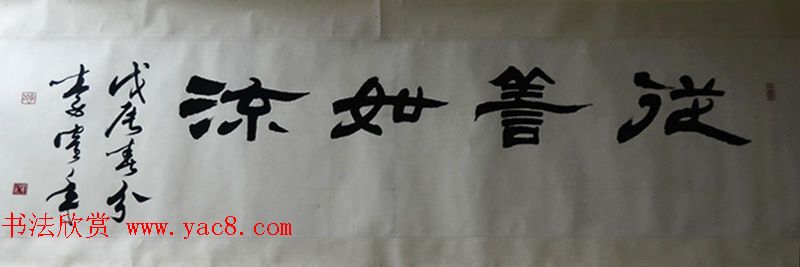 從善如流
戊春分
李
书法欣赏 www.yac8.com